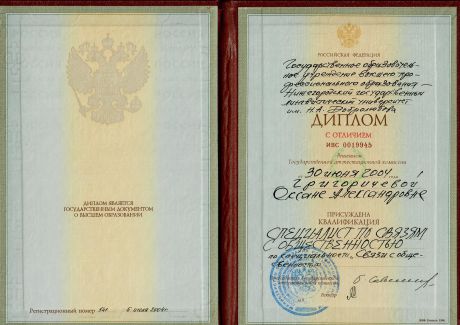 ДИПЛОМ ЯВЛЯЕТСЯ
ГОСУДАРСТВЕННЫМ ДОКУМЕНТОМ
О ВЫСШЕМ ОБРАЗОВАНИИ
Регистрационный номер 541 6 июля 2004 г.
РОССИЙСКАЯ ФЕДЕРАЦИЯ
Государственное образователь-
ное учреждение высшего про-
фессионального образования –
Нижегородский государственный
лингвистический университет
им. Н.А. Добролюбова
ДИПЛОМ
С ОТЛИЧИЕМ
ИВС 0019945
Решением
Государственной аттестационной комиссии
от 30 июня 2004 года
Григоричевой
Оксане Александровне
ПРИСУЖДЕНА
КВАЛИФИКАЦИЯ
СПЕЦИАЛИСТ ПО СВЯЗЯМ
С ОБЩЕСТВЕННОСТЬЮ
по специальности „Связи с обще-
ственностью